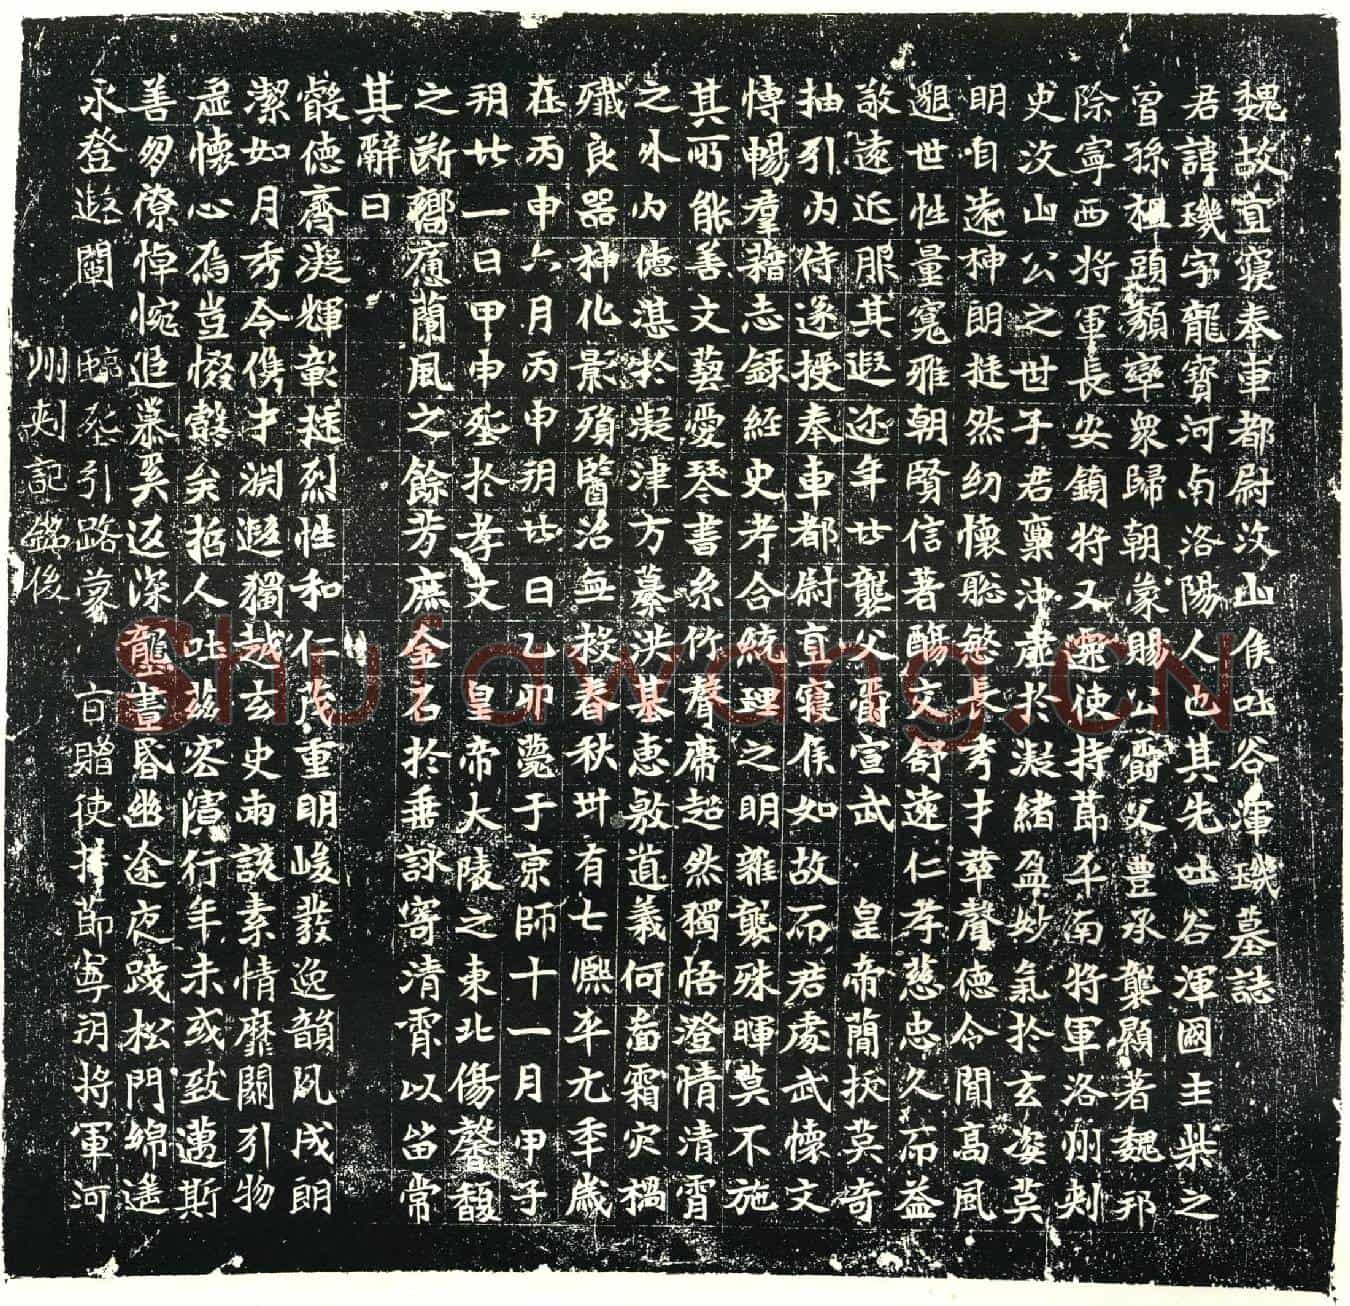 魏故直寢奉車都尉汶山侯吐谷渾璣墓誌
君諱璣字龍寶河南洛陽人也其先吐谷渾國主柴之
曾孫祖頭頹率衆歸朝蒙賜公爵父豊承襲顯著魏邦
除寧西將軍長安鎮將又遷使持節平南將軍洛州刾
史汶山公之世子君稟沖虛於凝緒盈妙氣於玄姿莫
明咱遠神朗挺然幼懷聡慜長考才華聲德令聞高風
邈世性量寬雅朝賢信著醻交舒遠仁孝慈忠久而益
敬遠近服其遐迩年廿襲父爵宣武 皇帝簡拔莫奇
抽引內侍遂授奉車都尉直寢侯如故而君處武懷文
博暢羣藉志錄經史考合統理之明雜襲殊暉莫不施
其所能善文藝愛琴書糸竹聲席超然獨悟澄情清霄
之外內德湛於凝津方纂洪基惠敷道義何啚霜灾禍
殲良器神化景殞醫治無救春秋卅有七熙平元年歲
在丙申六月丙申朔廿日乙卯薨于京師十一月甲子
朔廿一日甲申埊於孝文 皇帝大陵之東北傷馨馥
之斷嚮痛蘭風之餘芳庶金石於垂詠寄清霄以留常
其辭曰
叡德齊凝輝彰挺烈性和仁茂重明峻發逸韻夙成朗
潔如月秀令儁才淵遐獨越玄史兩該素情靡闕引物
虛懷心為豈惙懿矣抬人吐茲容瀍行年未或致邁斯
善朋僚悼惋追慕奚返深壟晝昏幽途夜踐松門綿遙
永登遐闉 臨埊引路蒙 旨贈使持節寧朔將軍河
州刾記銘後
Shufawang.CN